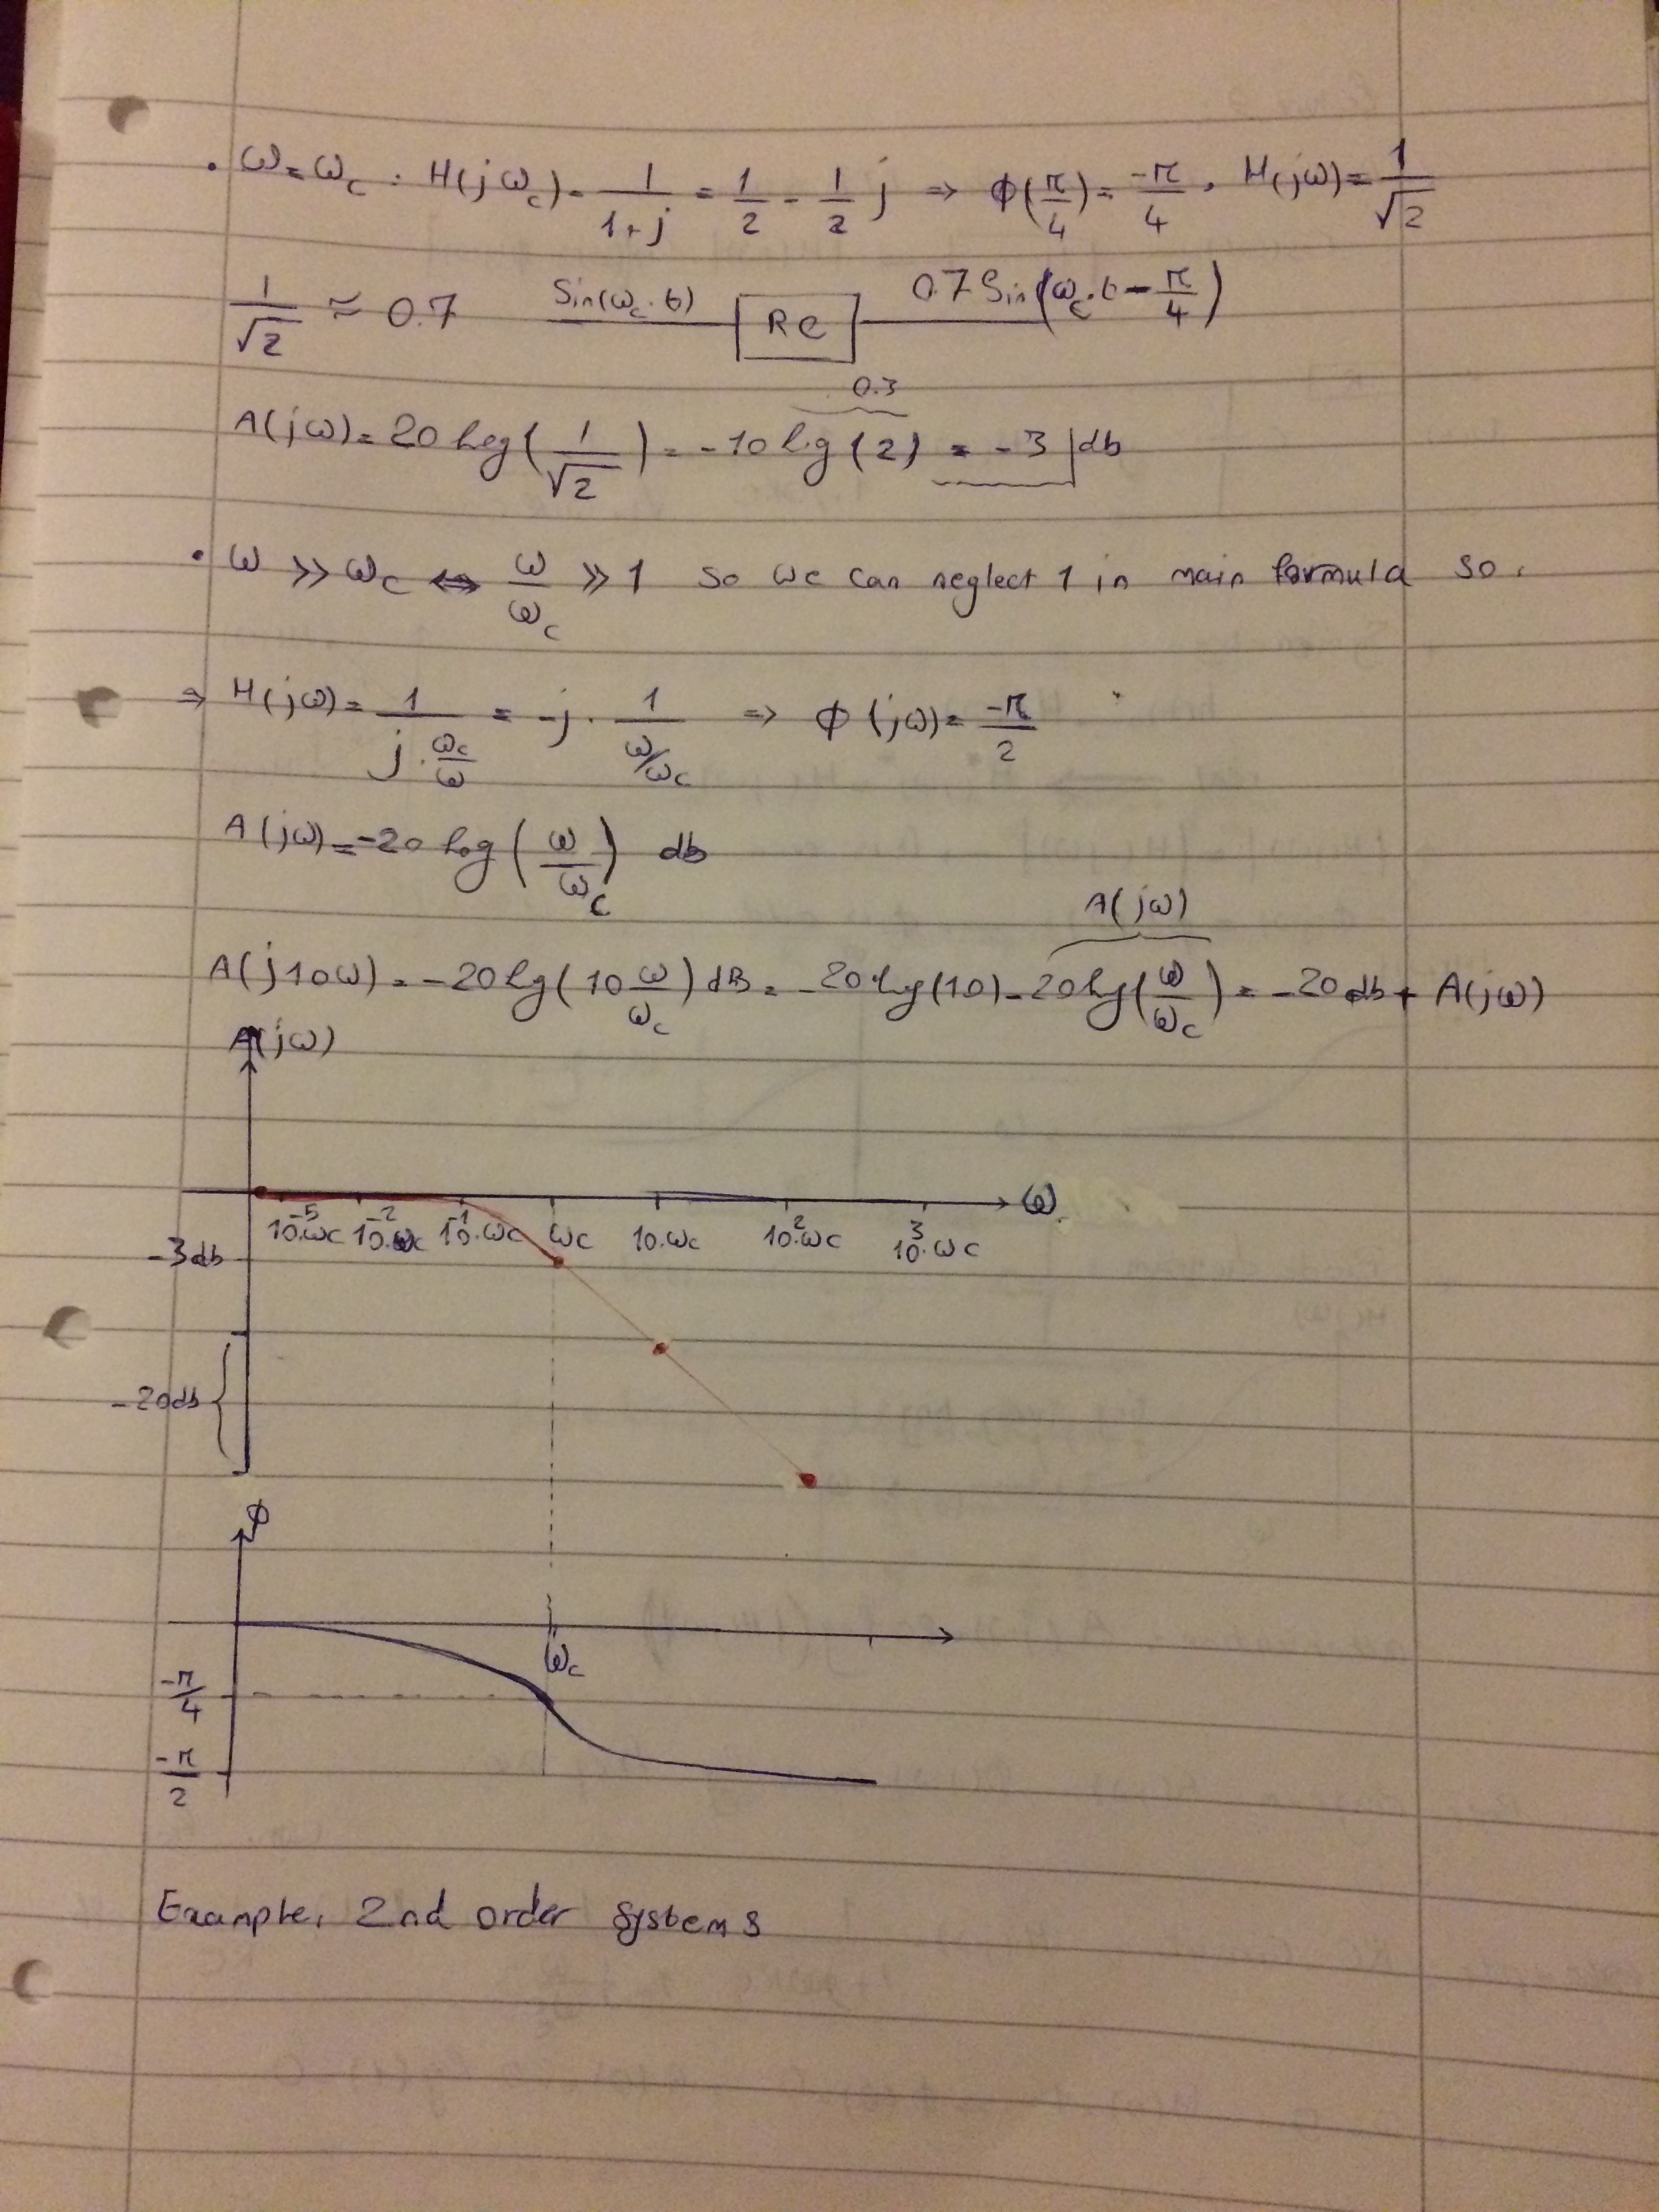 . ω = ω_c : H(jω_c) = 1/(1+j) = 1/2 - 1/2 j ⇒ ϕ(π/4) = -π/4 , H(jω) = 1/√2
1/√2 ≈ 0.7 Sin(ω_c.t) RC 0.7 Sin(ω_c.t - π/4)
0.3
A(jω) = 20 log(1/√2) = -10 log(2) = -3 db
• ω >> ω_c ⇔ ω/ω_c >> 1 so we can neglect 1 in main formula so.
⇒ H(jω) = 1/(j.ω_c/ω) = -j . 1/(ω/ω_c) ⇒ ϕ(jω) = -π/2
A(jω) = -20 log(ω/ω_c) db
A(jω)
A(j10ω) = -20 log(10 ω/ω_c) dB = -20 log(10) - 20 log(ω/ω_c) = -20 db + A(jω)
A(jω)
ω
10^-5.ωc 10^-2.ωc 10^-1.ωc ωc 10.ωc 10^2.ωc 10^3.ωc
-3db
-20db
ϕ
ωc
-π/4
-π/2
Example, 2nd order systems